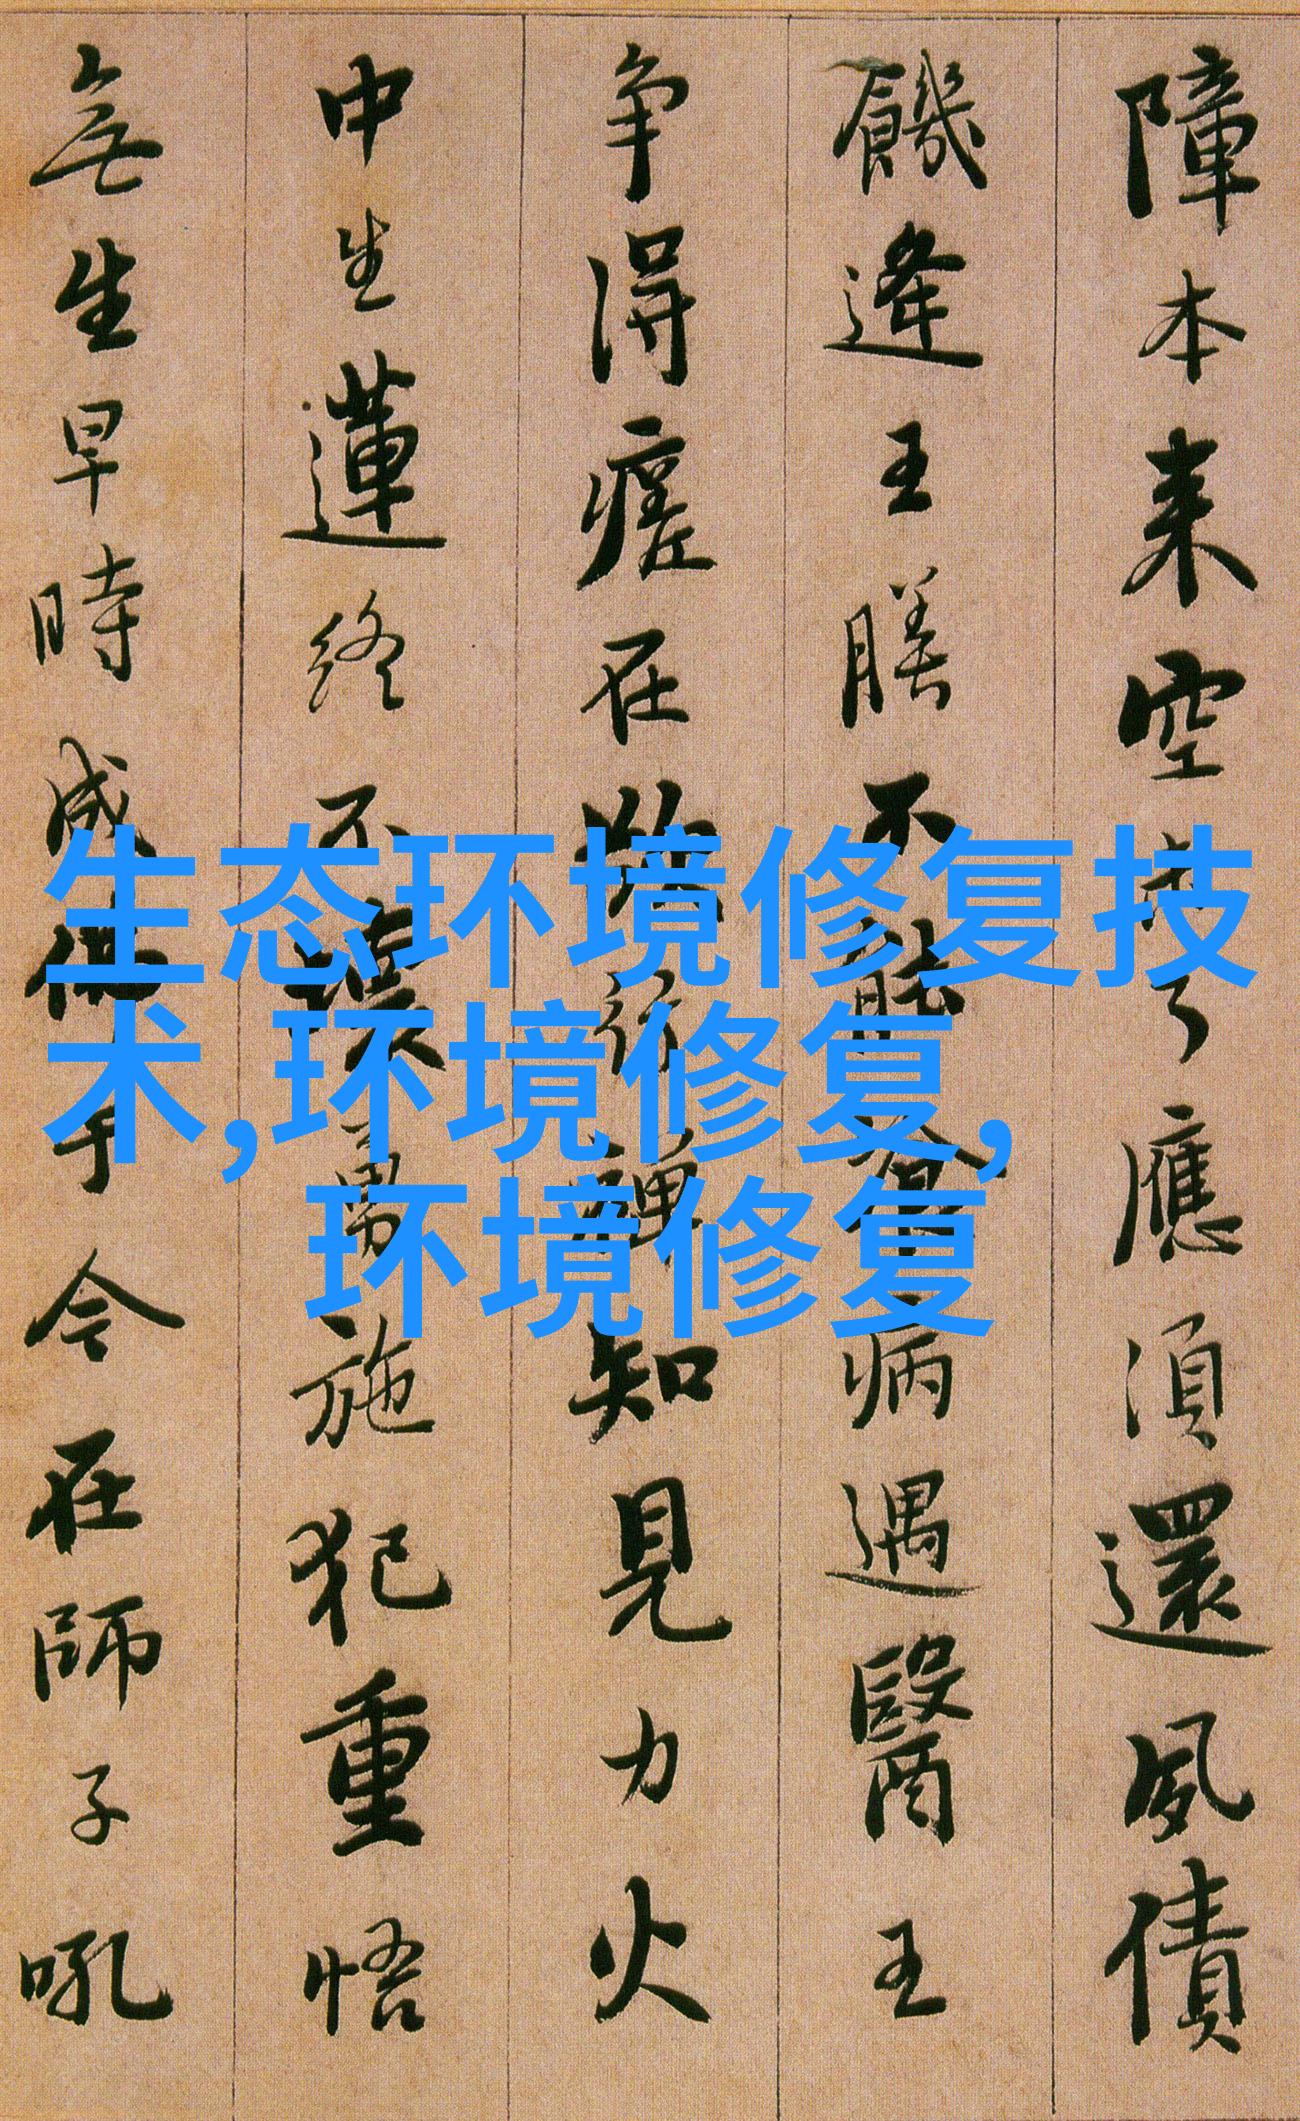 障本来空未了應須還夙債
饑逢王膳不能病遇醫王
争得瘥在欲行禪知見力火
中生蓮終不壞勇施犯重悟
無生早時成佛于今在師子吼
生态环境修复技
术,环境修复,
环境修复